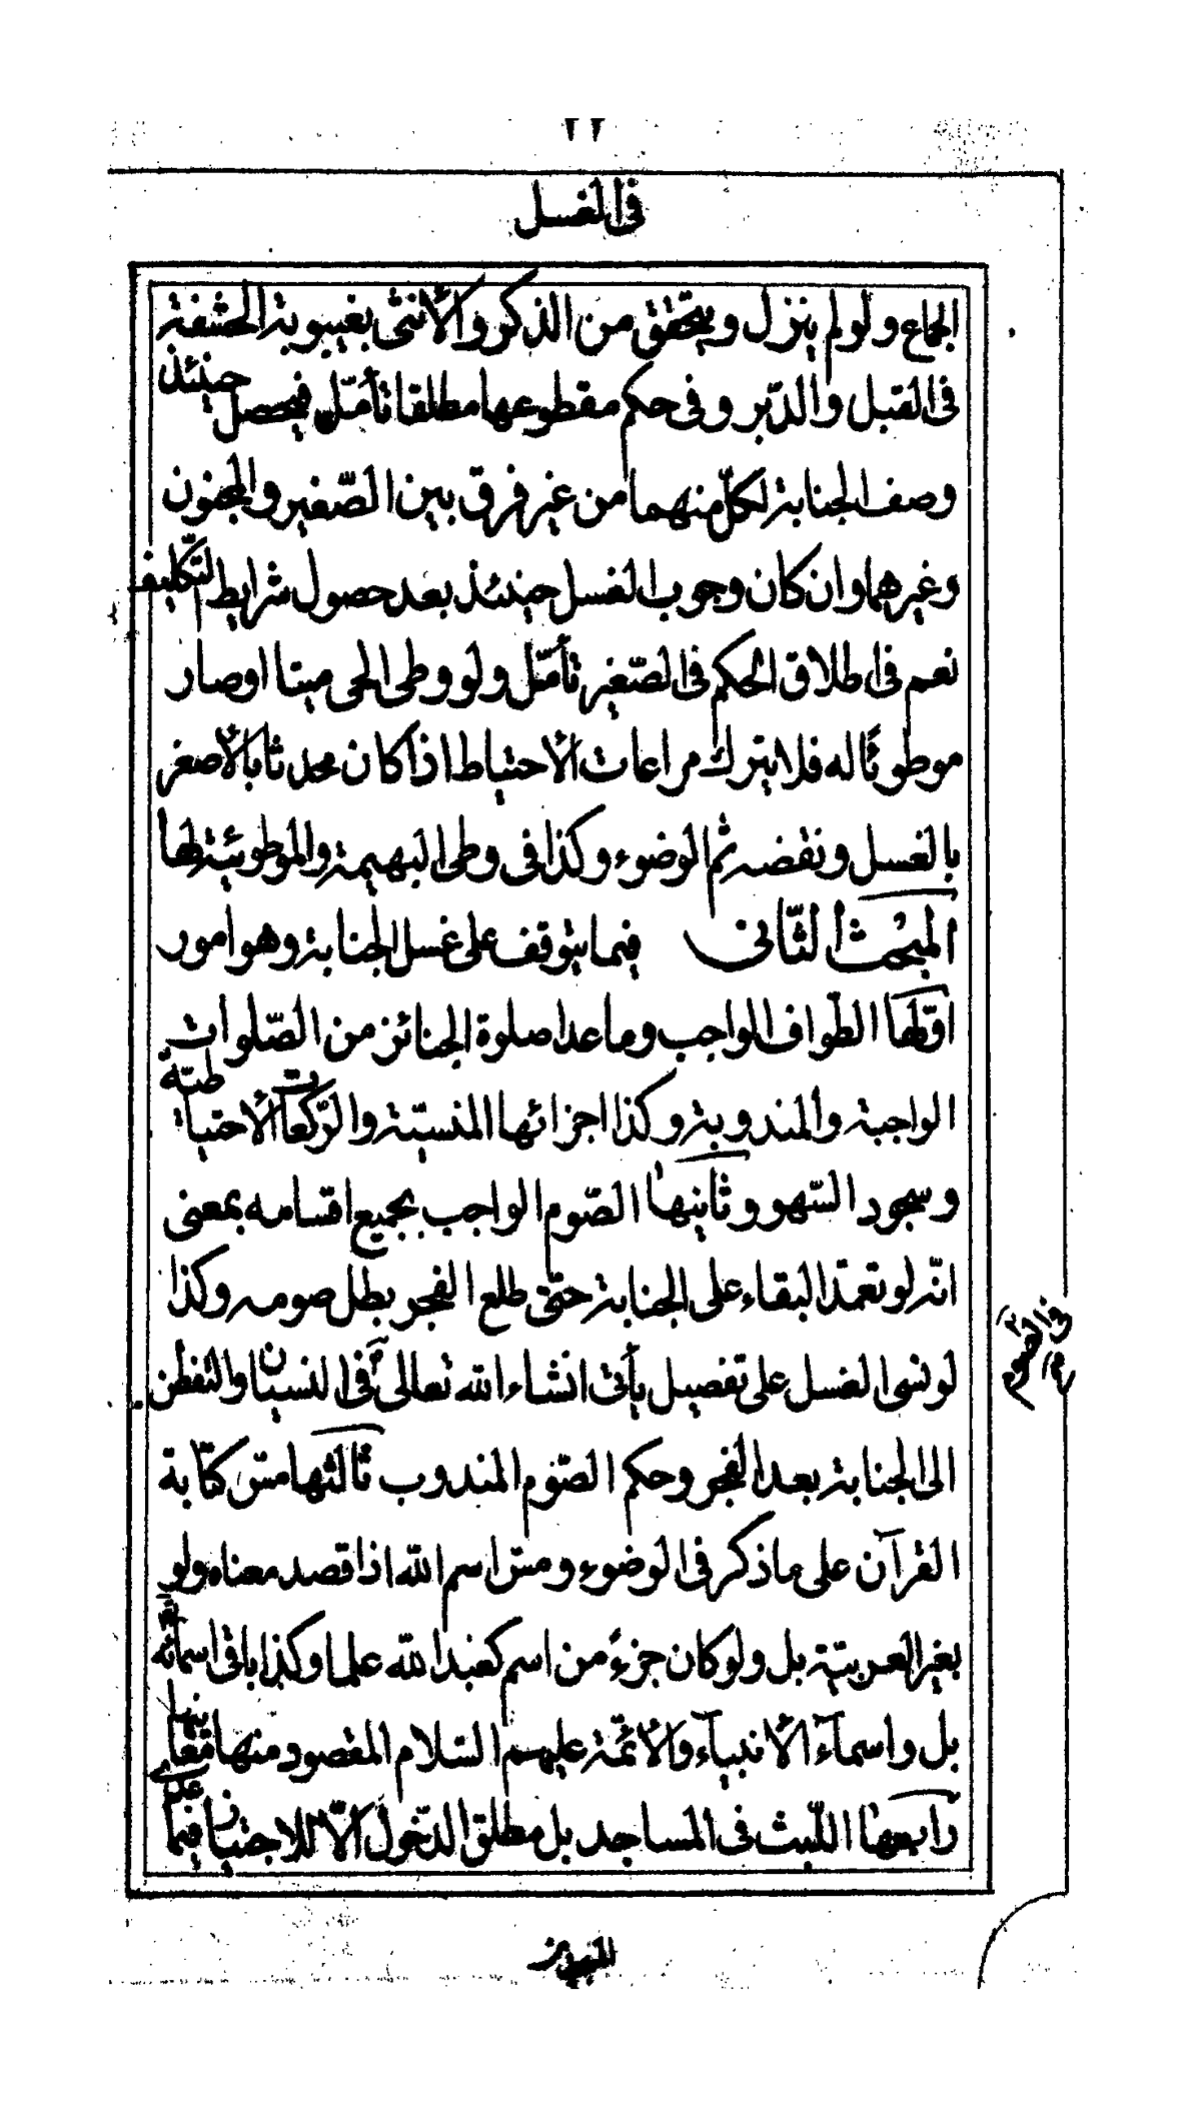 ۲۲
فی الغسل
الجماع ولو لم ینزل ویتحقق من الذکر والأنثی بغیبوبة الحشفة
فی القبل والدّبر وفی حکم مقطوعها مطلقا تأمّل فیحصل حینئذ
وصف الجنابة لکلّ منهما من غیر فرق بین الصّغیر والمجنون
وغیرهما وان کان وجوب الغسل حینئذ بعد حصول شرایط التّکلیف
نعم فی اطلاق الحکم فی الصّغیر تأمّل ولو وطی الحی میتا او صار
موطوئًا له فلا یترک مراعات الأحتیاط اذا کان محدثا بالأصغر
بالغسل ونقضه ثم الوضوء وکذا فی وطی البهیمة والموطوئیة لها
المبحث الثّانی فیما یتوقف علی غسل الجنابة وهو امور
اوّلها الطّواف الواجب وما عدا صلوة الجنائز من الصّلوات
الواجبة والمندوبة وکذا اجزائها المنسیّة والرّکعات الأحتیاطیّة
وسجود السّهو وثانیها الصّوم الواجب بجمیع اقسامه بمعنی
انّه لو تعمّد البقاء علی الجنابة حتّی طلع الفجر بطل صومه وکذا
لو نسی الغسل علی تفصیل یأتی انشاء الله تعالی فی النسیان والتفطّن
فی الصّوم
الی الجنابة بعد الفجر وحکم الصّوم المندوب ثالثها مسّ کتابة
القرآن علی ما ذکر فی الوضوء ومسّ اسم الله اذا قصد معناه ولو
بغیر العربیّة بل ولو کان جزءً من اسم کعبد الله علما وکذا باقی اسمائه
بل واسمآء الأنبیآء والأئمّة علیهم السّلام المقصود منها معانیها
رابعها اللّبث فی المساجد بل مطلق الدّخول الّا للاجتیاز فیما عدا
المسجدین